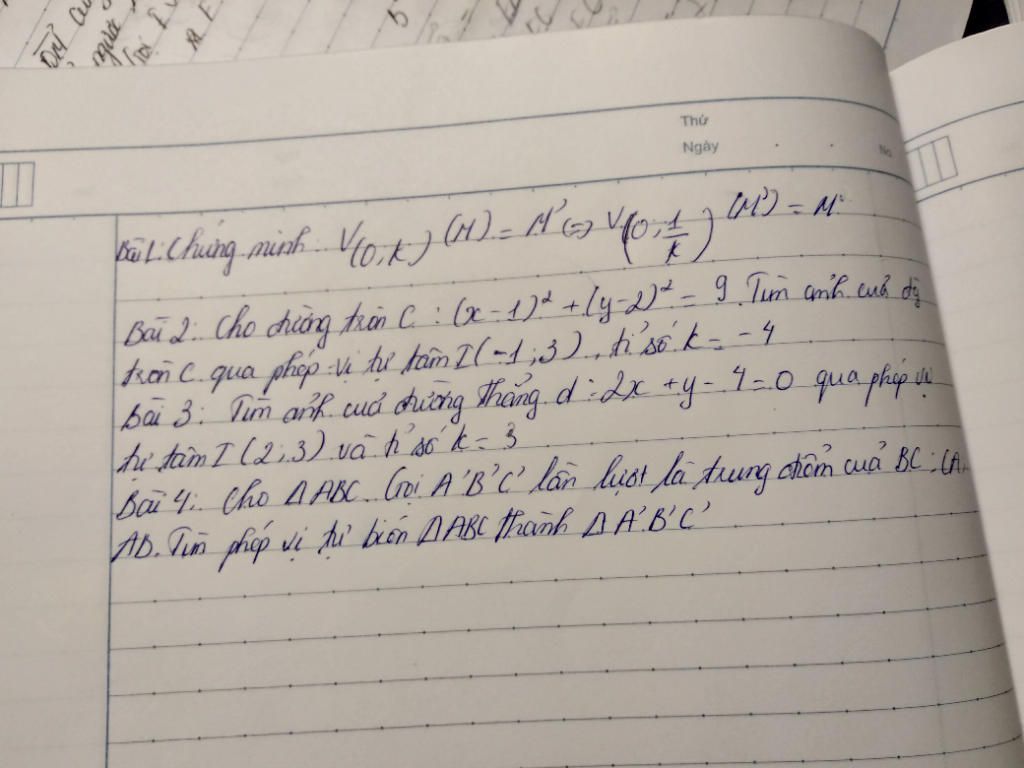 Thứ
Ngày
No
Bài 1: Chứng minh: V(O; k) (M) = M' <=> V(O; 1/k) (M') = M.
Bài 2: Cho đường tròn C: (x-1)² + (y-2)² = 9. Tìm ảnh của đg
tròn C qua phép vị tự tâm I(-1; 3), tỉ số k = -4
Bài 3: Tìm ảnh của đường thẳng d: 2x + y - 4 = 0 qua phép vị
tự tâm I(2; 3) và tỉ số k = 3
Bài 4: Cho ΔABC. Gọi A'B'C' lần lượt là trung điểm của BC; CA,
AB. Tìm phép vị tự biến ΔABC thành ΔA'B'C'